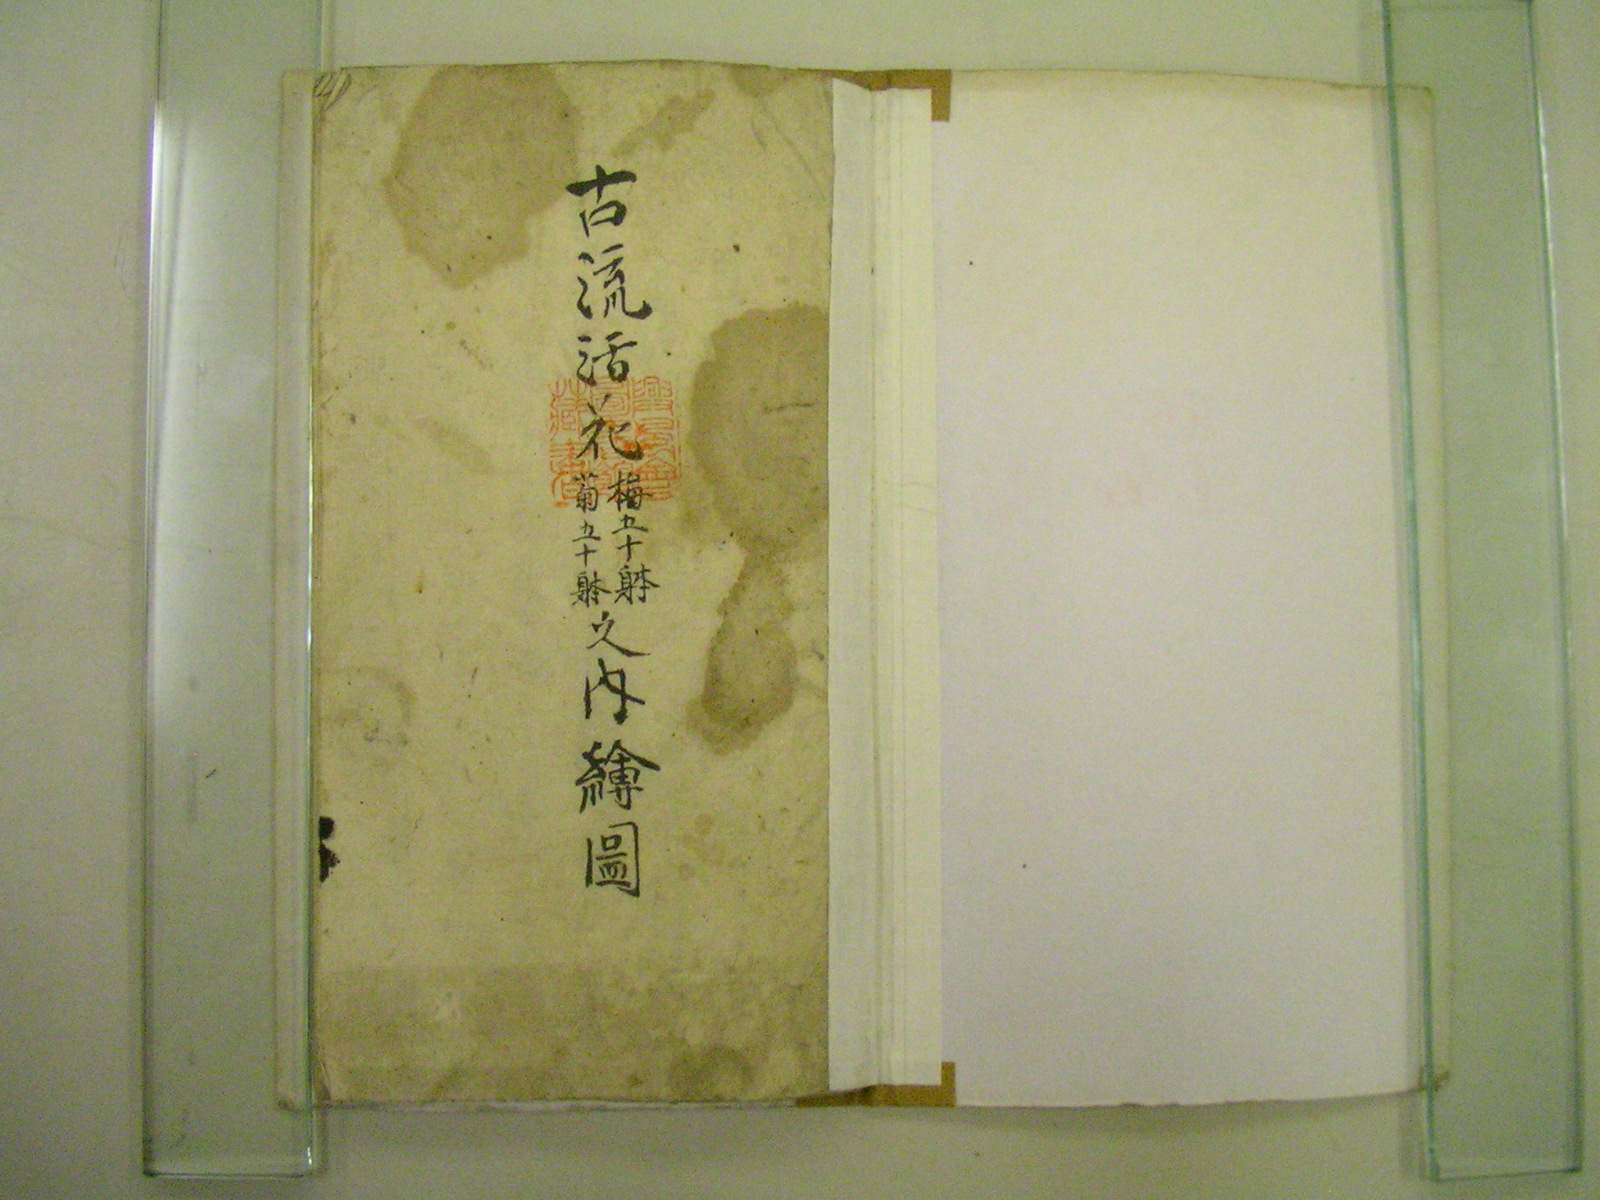 古流活花
梅五十躰
菊五十躰
之内繪圖